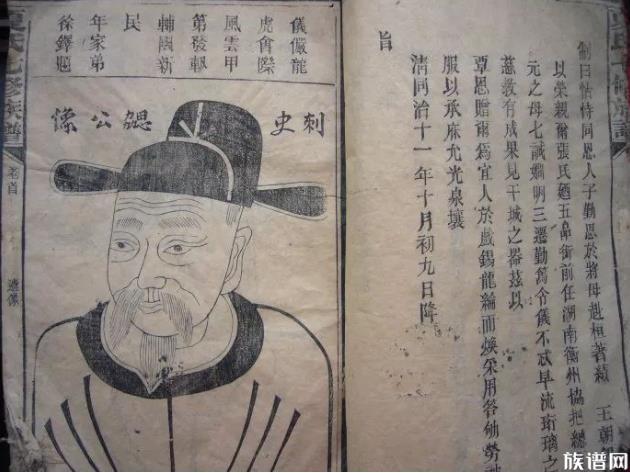 制曰怙恃同恩人子勤思於將母赳桓著績 王朝
以榮親爾張氏廼五品銜前任湖南衡州協把總
元之母七誡嫻明三遷勤篤令儀不忒早流珩璜之
慈教有成果見干城之器茲以
覃恩贈爾為宜人於戲錫龍綸而煥采用答劬勞
服以承庥允光泉壤
清同治十一年十月初九日降
旨
儀儼龍
虎會際
風雲甲
第發軔
輔國新
民
年家弟
徐鐸題
刺史勰公像
氏七修族譜
卷首
遺像
族谱网